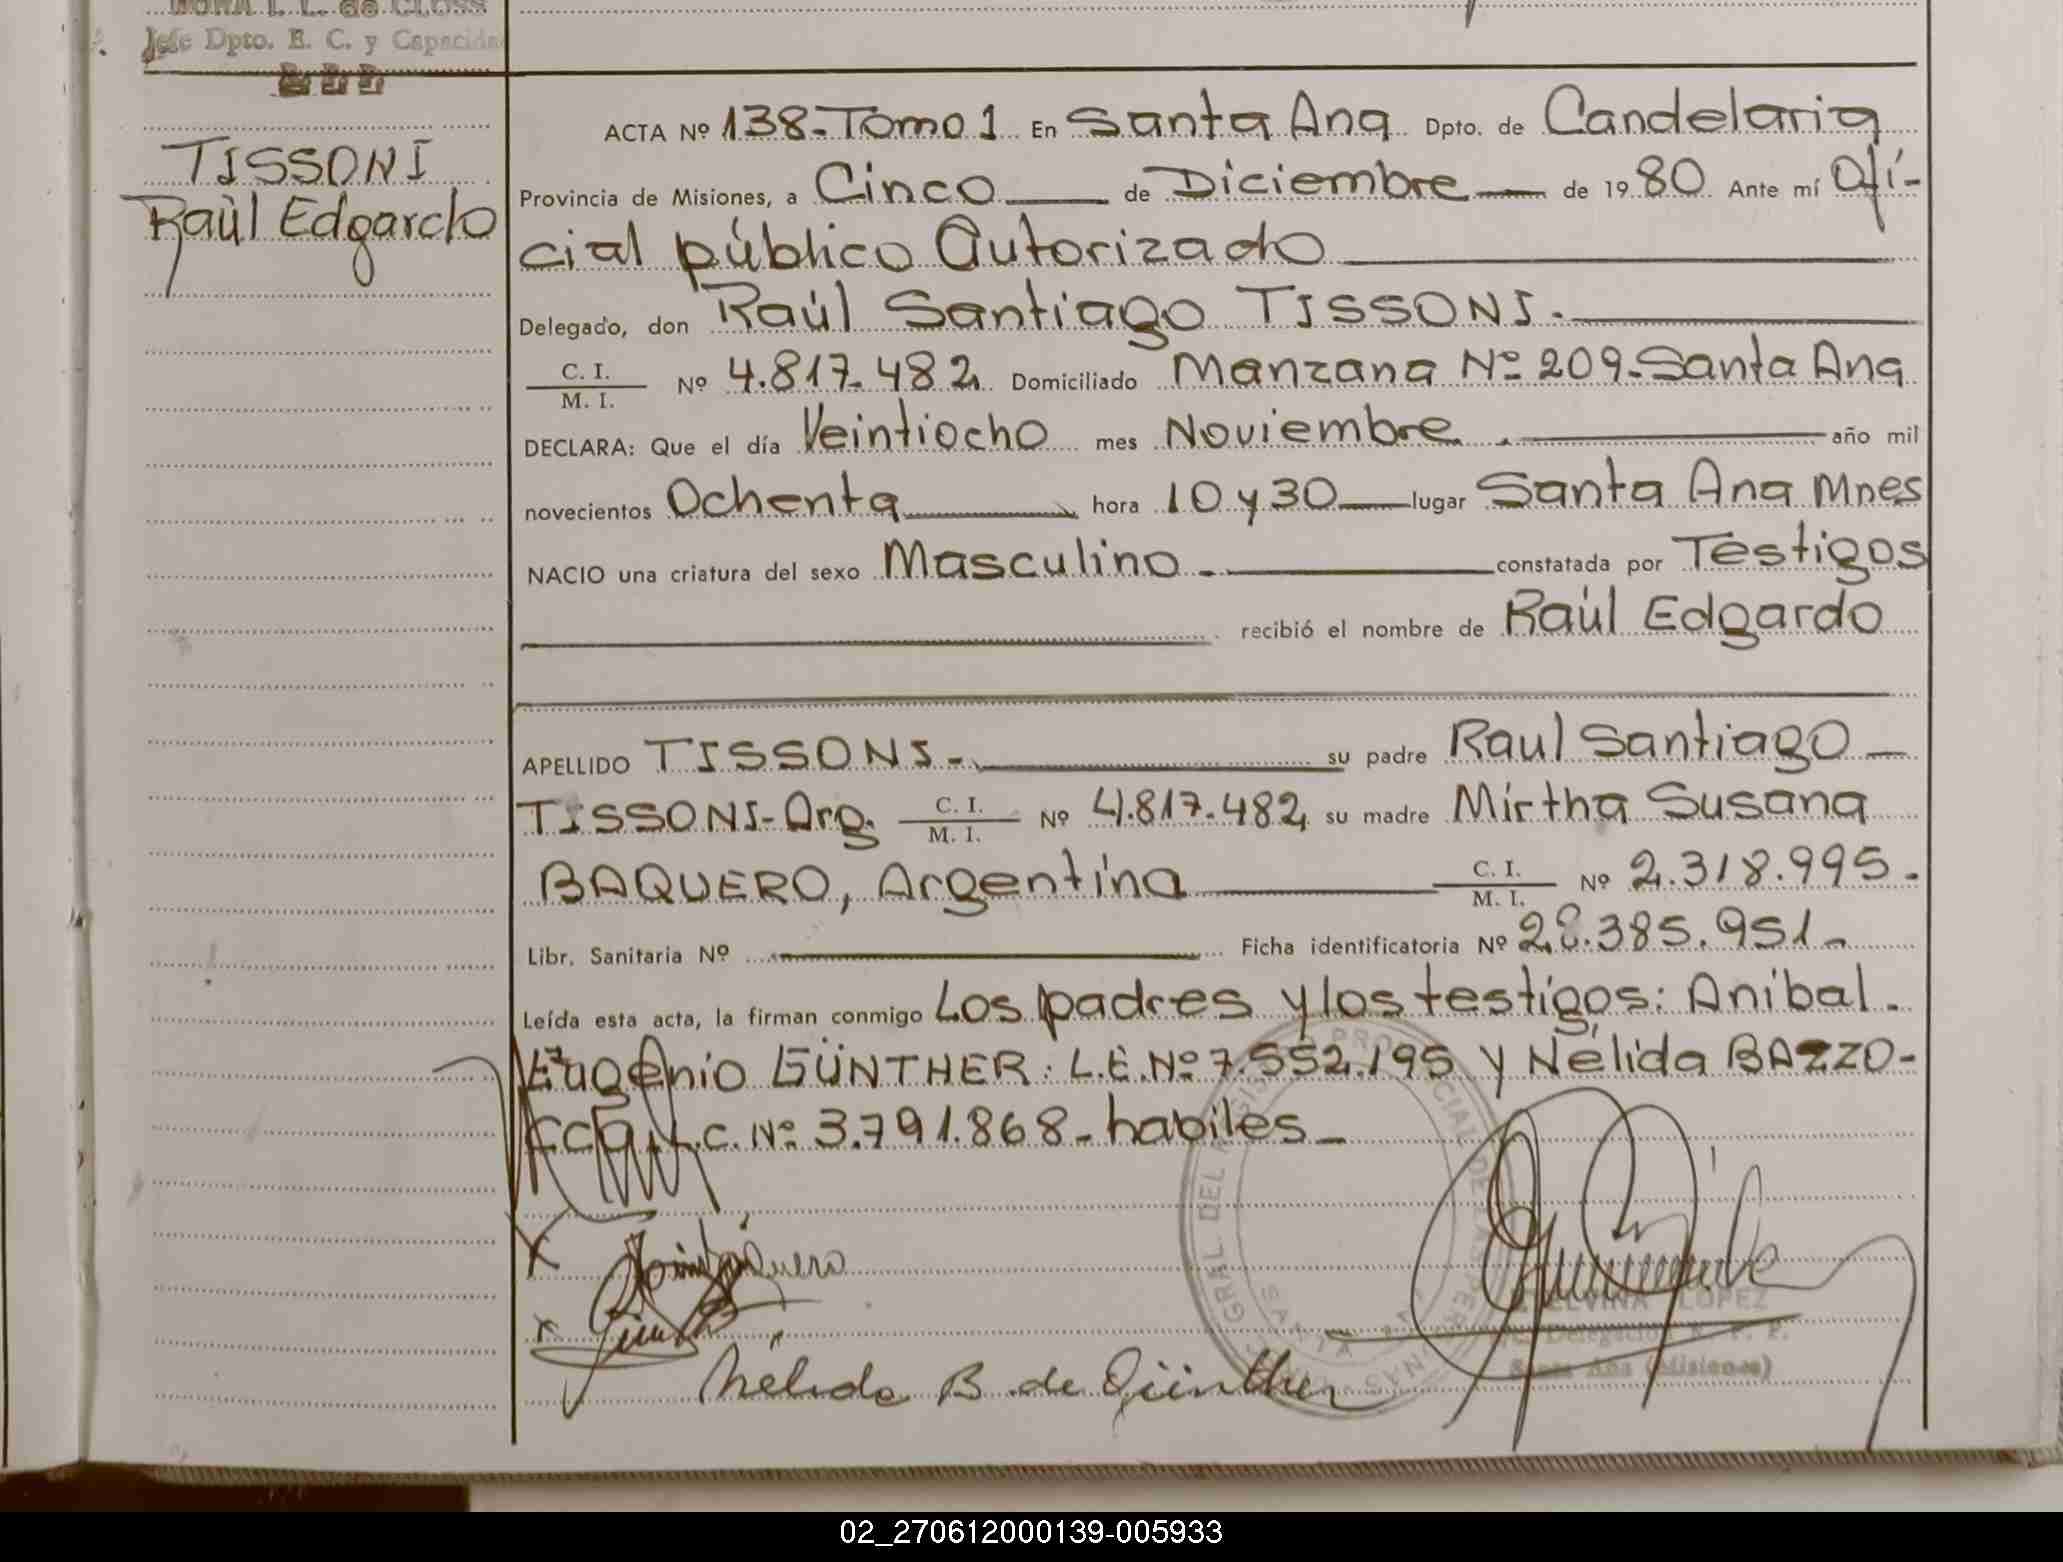 NORA I. L. de CLOSS
Jefe Dpto. E. C. y Capacidad
TISSONI
Raúl Edgardo
ACTA Nº 138-Tomo 1 En Santa Ana Dpto. de Candelaria
Provincia de Misiones, a Cinco de Diciembre de 1980 Ante mí Ofi-
cial público Autorizado
Delegado, don Raúl Santiago TISSONI.
C. I.
M. I. Nº 4.817.482 Domiciliado Manzana Nº 209-Santa Ana
DECLARA: Que el día Veintiocho mes Noviembre año mil
novecientos Ochenta hora 10 y 30 lugar Santa Ana Mnes
NACIO una criatura del sexo Masculino constatada por Testigos
recibió el nombre de Raúl Edgardo
APELLIDO TISSONI- su padre Raul Santiago
TISSONI-Arg. C. I. M. I. Nº 4.817.482 su madre Mirtha Susana
BAQUERO, Argentina C. I. M. I. Nº 2.318.995.
Libr. Sanitaria Nº Ficha identificatoria Nº 28.385.951-
Leída esta acta, la firman conmigo Los padres y los testigos: Anibal
Eugenio GÜNTHER: L.E.Nº 7.552.195 y Nélida BAZZO-
CCA L.C. Nº 3.791.868- habiles-
Nélida B. de Günther
ELVINA LOPEZ
Delegación R. P. P.
Santa Ana (Misiones)
SANTA ANA
02_270612000139-005933